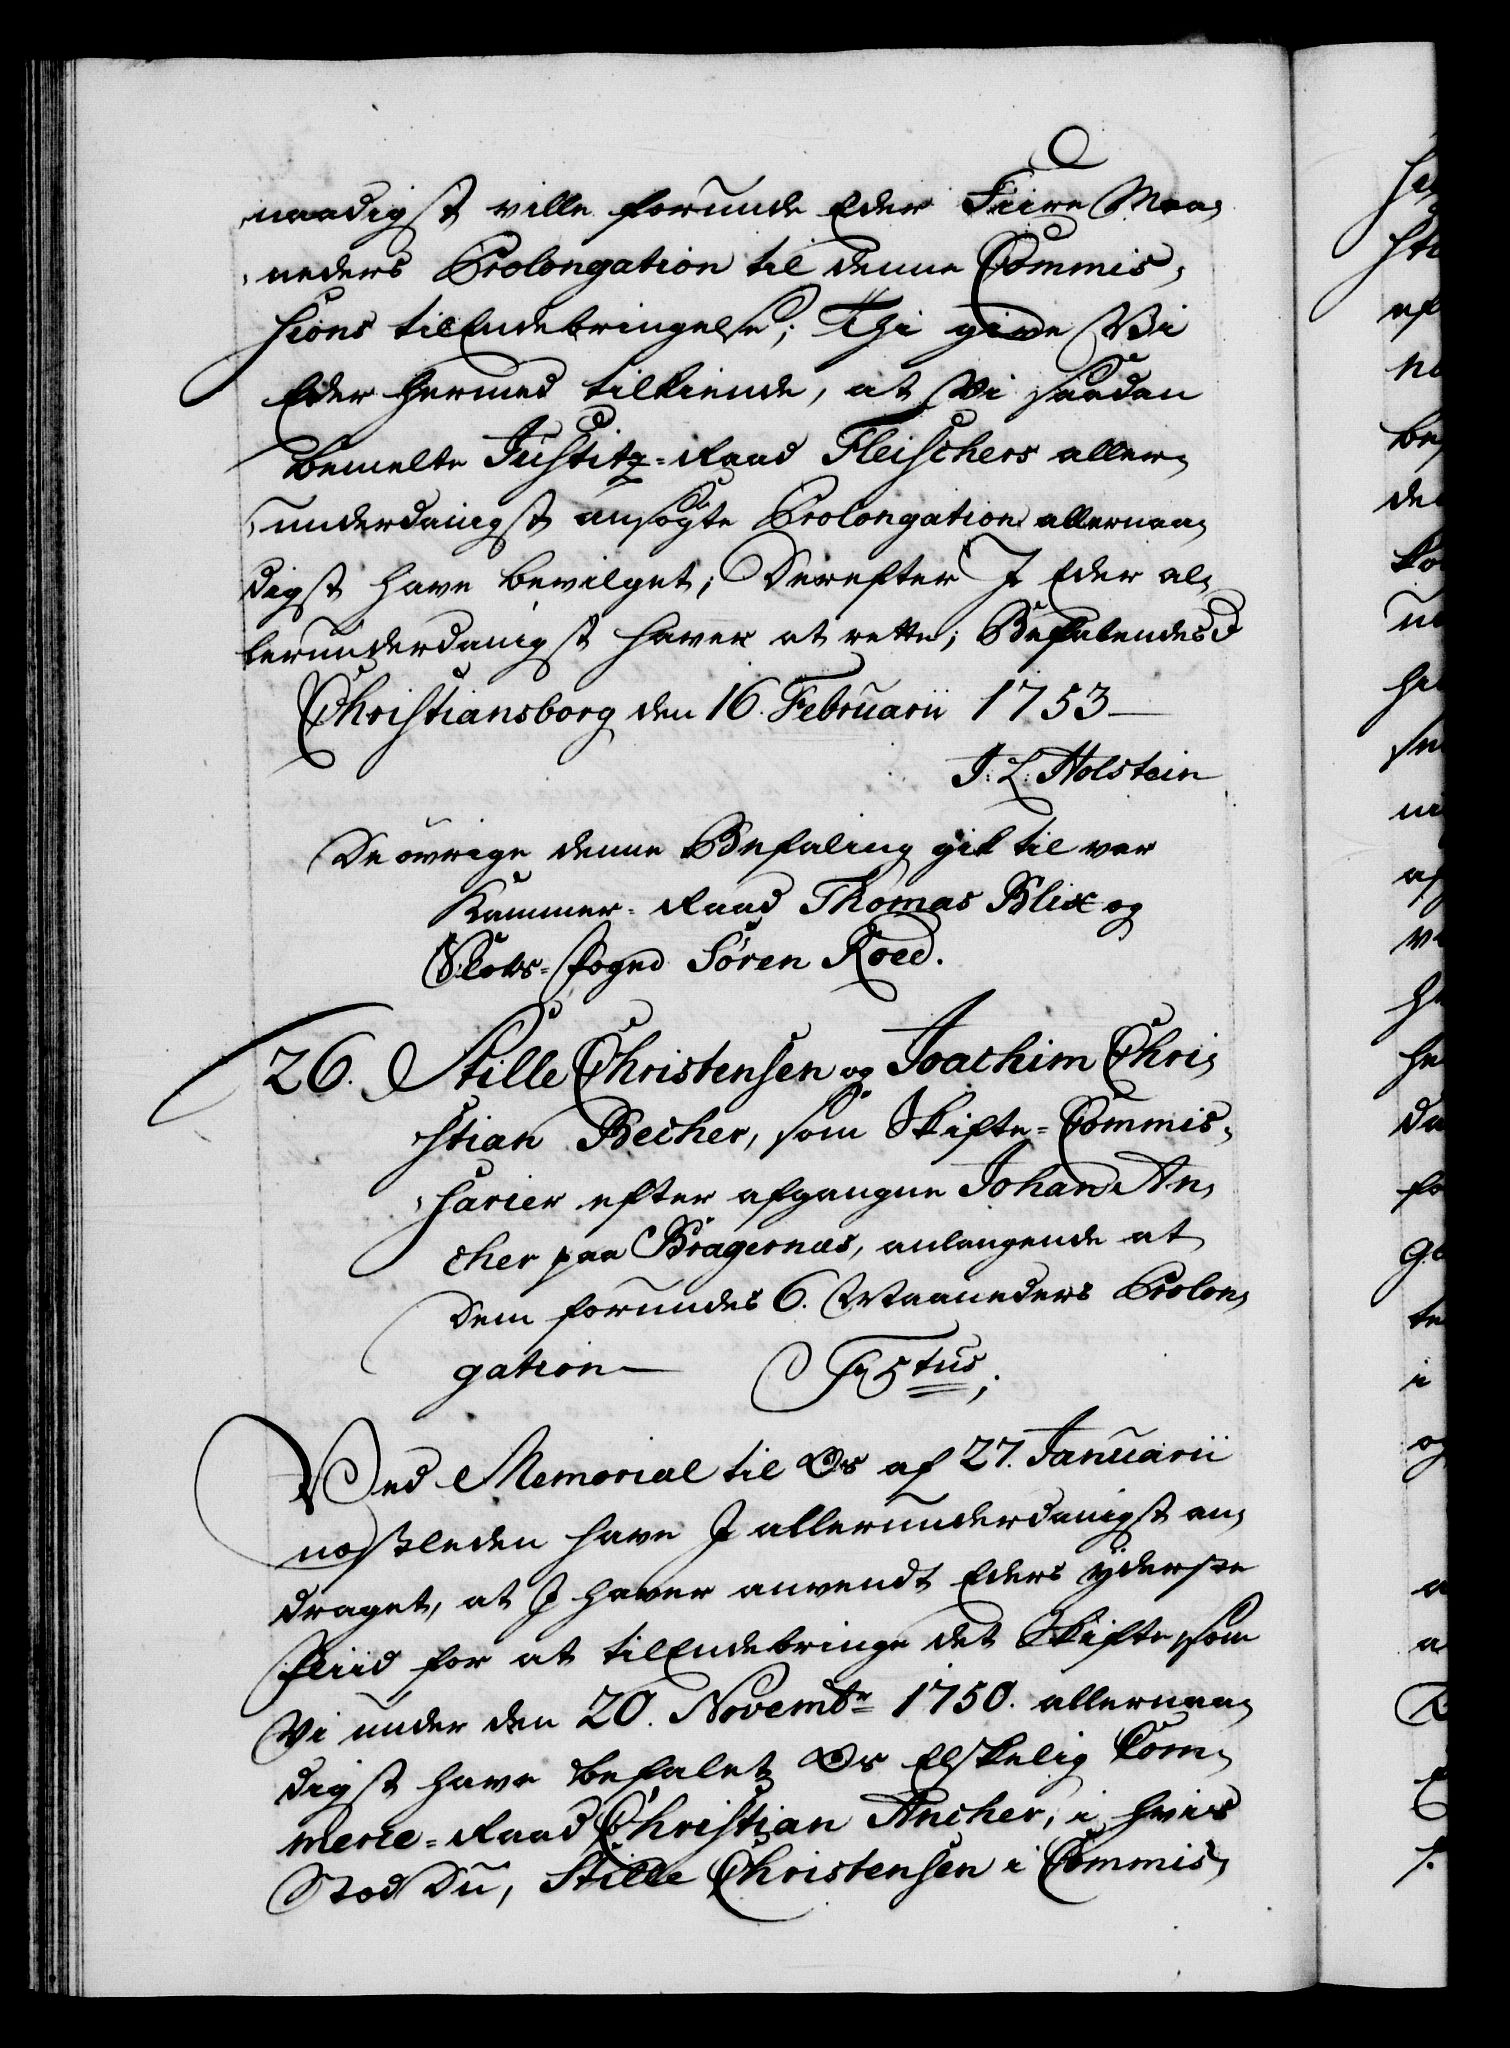 naadigst ville forunde Eder Fiire Maa,
neders Prolongation til denne Commis,
sions tilEndebringelse; Thi give Vi
Eder hermed tilkiende, at Vi saadan
bemelte Justitz-Raad Fleischers aller,
underdanigst ansøgte Prolongation allernaa,
digst have bevilget; Derefter I Eder al,
lerunderdanigst haver at rette; Befalendes
Christiansborg den 16. Februarii 1753
J: L: Holstein
De øvrige denne Befaling gik til var
Kammer-Raad Thomas Blix og
Slots-Foged Søren Roed.
26. Stille Christensen og Joachim Chri,
stian Becher, som Skifte-Commis,
sarier efter afgangne Johan An,
cher paa Bragernæs, anlangende at
dem forundes 6. Maaneders Prolon,
gation F5tus;
Ved Memorial til Os af 27. Januarii
nestleden have I allerunderdanigst an,
draget, at I haver anvendt Eders yderste
Fliid for at tilEndebringe det Skifte, som
Vi under den 20. Novembr 1750. allernaa,
digst have befalet Os Elskelig Com,
merce-Raad Christian Ancher, i hvis
Sted Du, Stille Christensen i Commis,